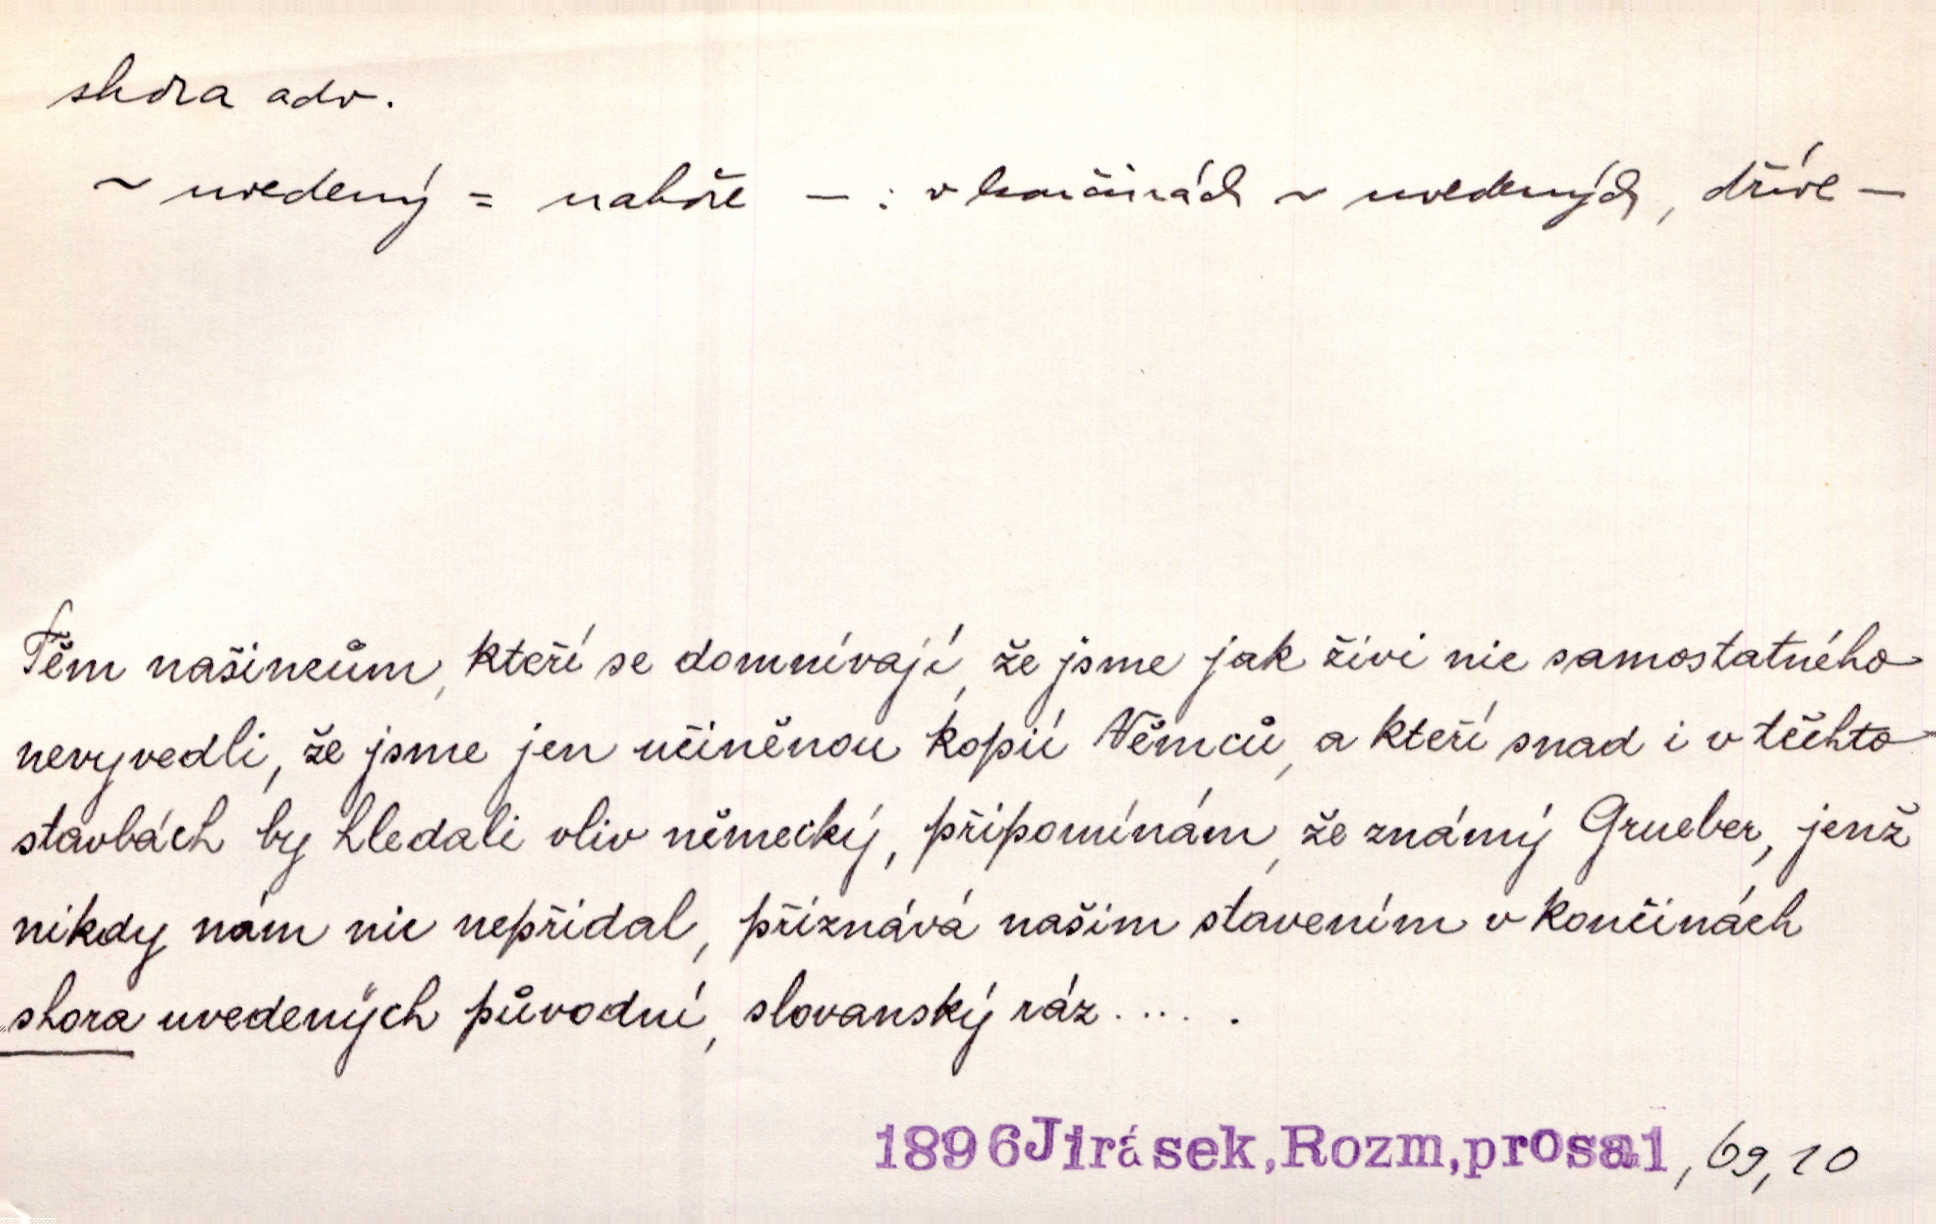 shora adv.
~ uvedený = nahoře — : v končinách ~ uvedených, dříve —
Těm našincům, kteří se domnívají, že jsme jak živi nic samostatného
nevyvedli, že jsme jen učiněnou kopií Němců, a kteří snad i v těchto
stavbách by hledali vliv německý, připomínám, že známý Grueber, jenž
nikdy nám nic nepřidal, přiznává našim stavením v končinách
shora uvedených původní, slovanský ráz.....
1896 Jirásek, Rozm, prosa1, 69, 10